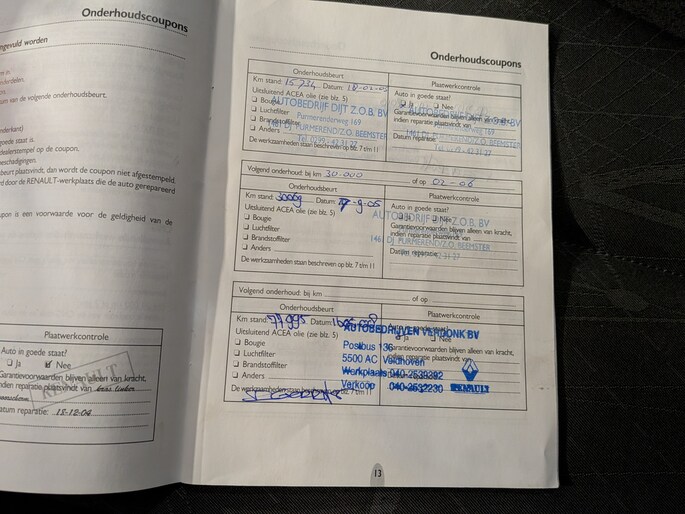 Onderhoudscoupons
ngevuld worden
van de volgende onderhoudsbeurt.
goede staat is.
op de coupon,
beurt plaatsvindt, dan wordt de coupon niet afgestempeld.
door de RENAULT-werkplaats die de auto gerepareerd
is een voorwaarde voor de geldigheid van de
Plaatwerkcontrole
Auto in goede staat?
Ja Nee
Garantievoorwaarden blijven alleen van kracht,
indien reparatie plaatsvindt van
datum reparatie: 18-12-04
RENAULT
Onderhoudscoupons
Onderhoudsbeurt
Km stand: 15.734 Datum:
Uitsluitend ACEA olie (zie blz. 5)
Bougie
Luchtfilter
Brandstoffilter
Anders
De werkzaamheden staan beschreven op blz. 7 t/m 11
Plaatwerkcontrole
Auto in goede staat?
Ja Nee
Garantievoorwaarden blijven alleen van kracht,
indien reparatie plaatsvindt van
Datum reparatie:
AUTOBEDRIJF DIJT Z.O.B. BV
Purmerenderweg 169
1461 DJ PURMEREND/Z.O. BEEMSTER
Volgend onderhoud: bij km 30.000 of op 02-06
Onderhoudsbeurt
Km stand: Datum:
Uitsluitend ACEA olie (zie blz. 5)
Bougie
Luchtfilter
Brandstoffilter
Anders
De werkzaamheden staan beschreven op blz. 7 t/m 11
Plaatwerkcontrole
Auto in goede staat?
Ja Nee
Garantievoorwaarden blijven alleen van kracht,
indien reparatie plaatsvindt van
Datum reparatie:
AUTOBEDRIJF DIJT Z.O.B. BV
1461 DJ PURMEREND/Z.O. BEEMSTER
Volgend onderhoud: bij km of op
Onderhoudsbeurt
Km stand: 77995 Datum:
Uitsluitend ACEA olie (zie blz. 5)
Bougie
Luchtfilter
Brandstoffilter
Anders
De werkzaamheden staan beschreven op blz. 7 t/m 11
Plaatwerkcontrole
Auto in goede staat?
Ja Nee
Garantievoorwaarden blijven alleen van kracht,
indien reparatie plaatsvindt van
Datum reparatie:
AUTOBEDRIJVEN VERDONK BV
Postbus 136
5500 AC Veldhoven
Werkplaats 040-2539392
Verkoop 040-2532230 RENAULT
13